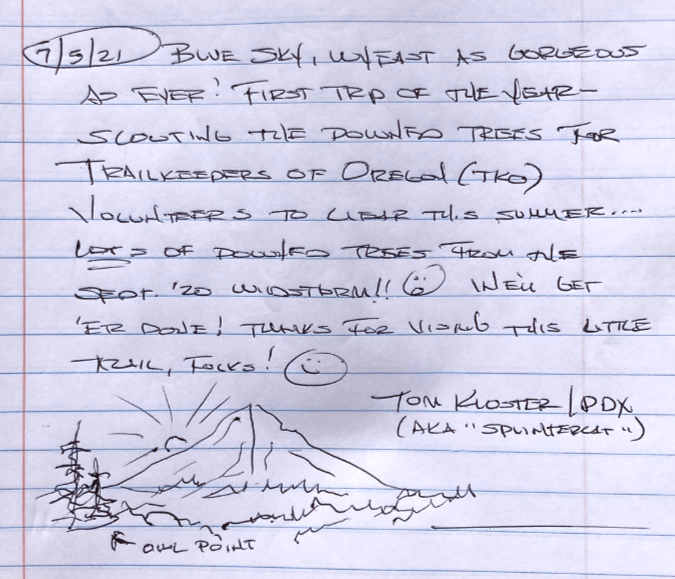 7/5/21 BLUE SKY, WY'EAST AS GORGEOUS
AS EVER! FIRST TRIP OF THE YEAR -
SCOUTING THE DOWNED TREES FOR
TRAILKEEPERS OF OREGON (TKO)
VOLUNTEERS TO CLEAR THIS SUMMER....
LOTS OF DOWNED TREES FROM THE
SEPT. '20 WINDSTORM!! WE'LL GET
'ER DONE! THANKS FOR VISITING THIS LITTLE
TRAIL, FOLKS!
TOM KLOSTER / PDX
(AKA "SPLINTERCAT")
OWL POINT